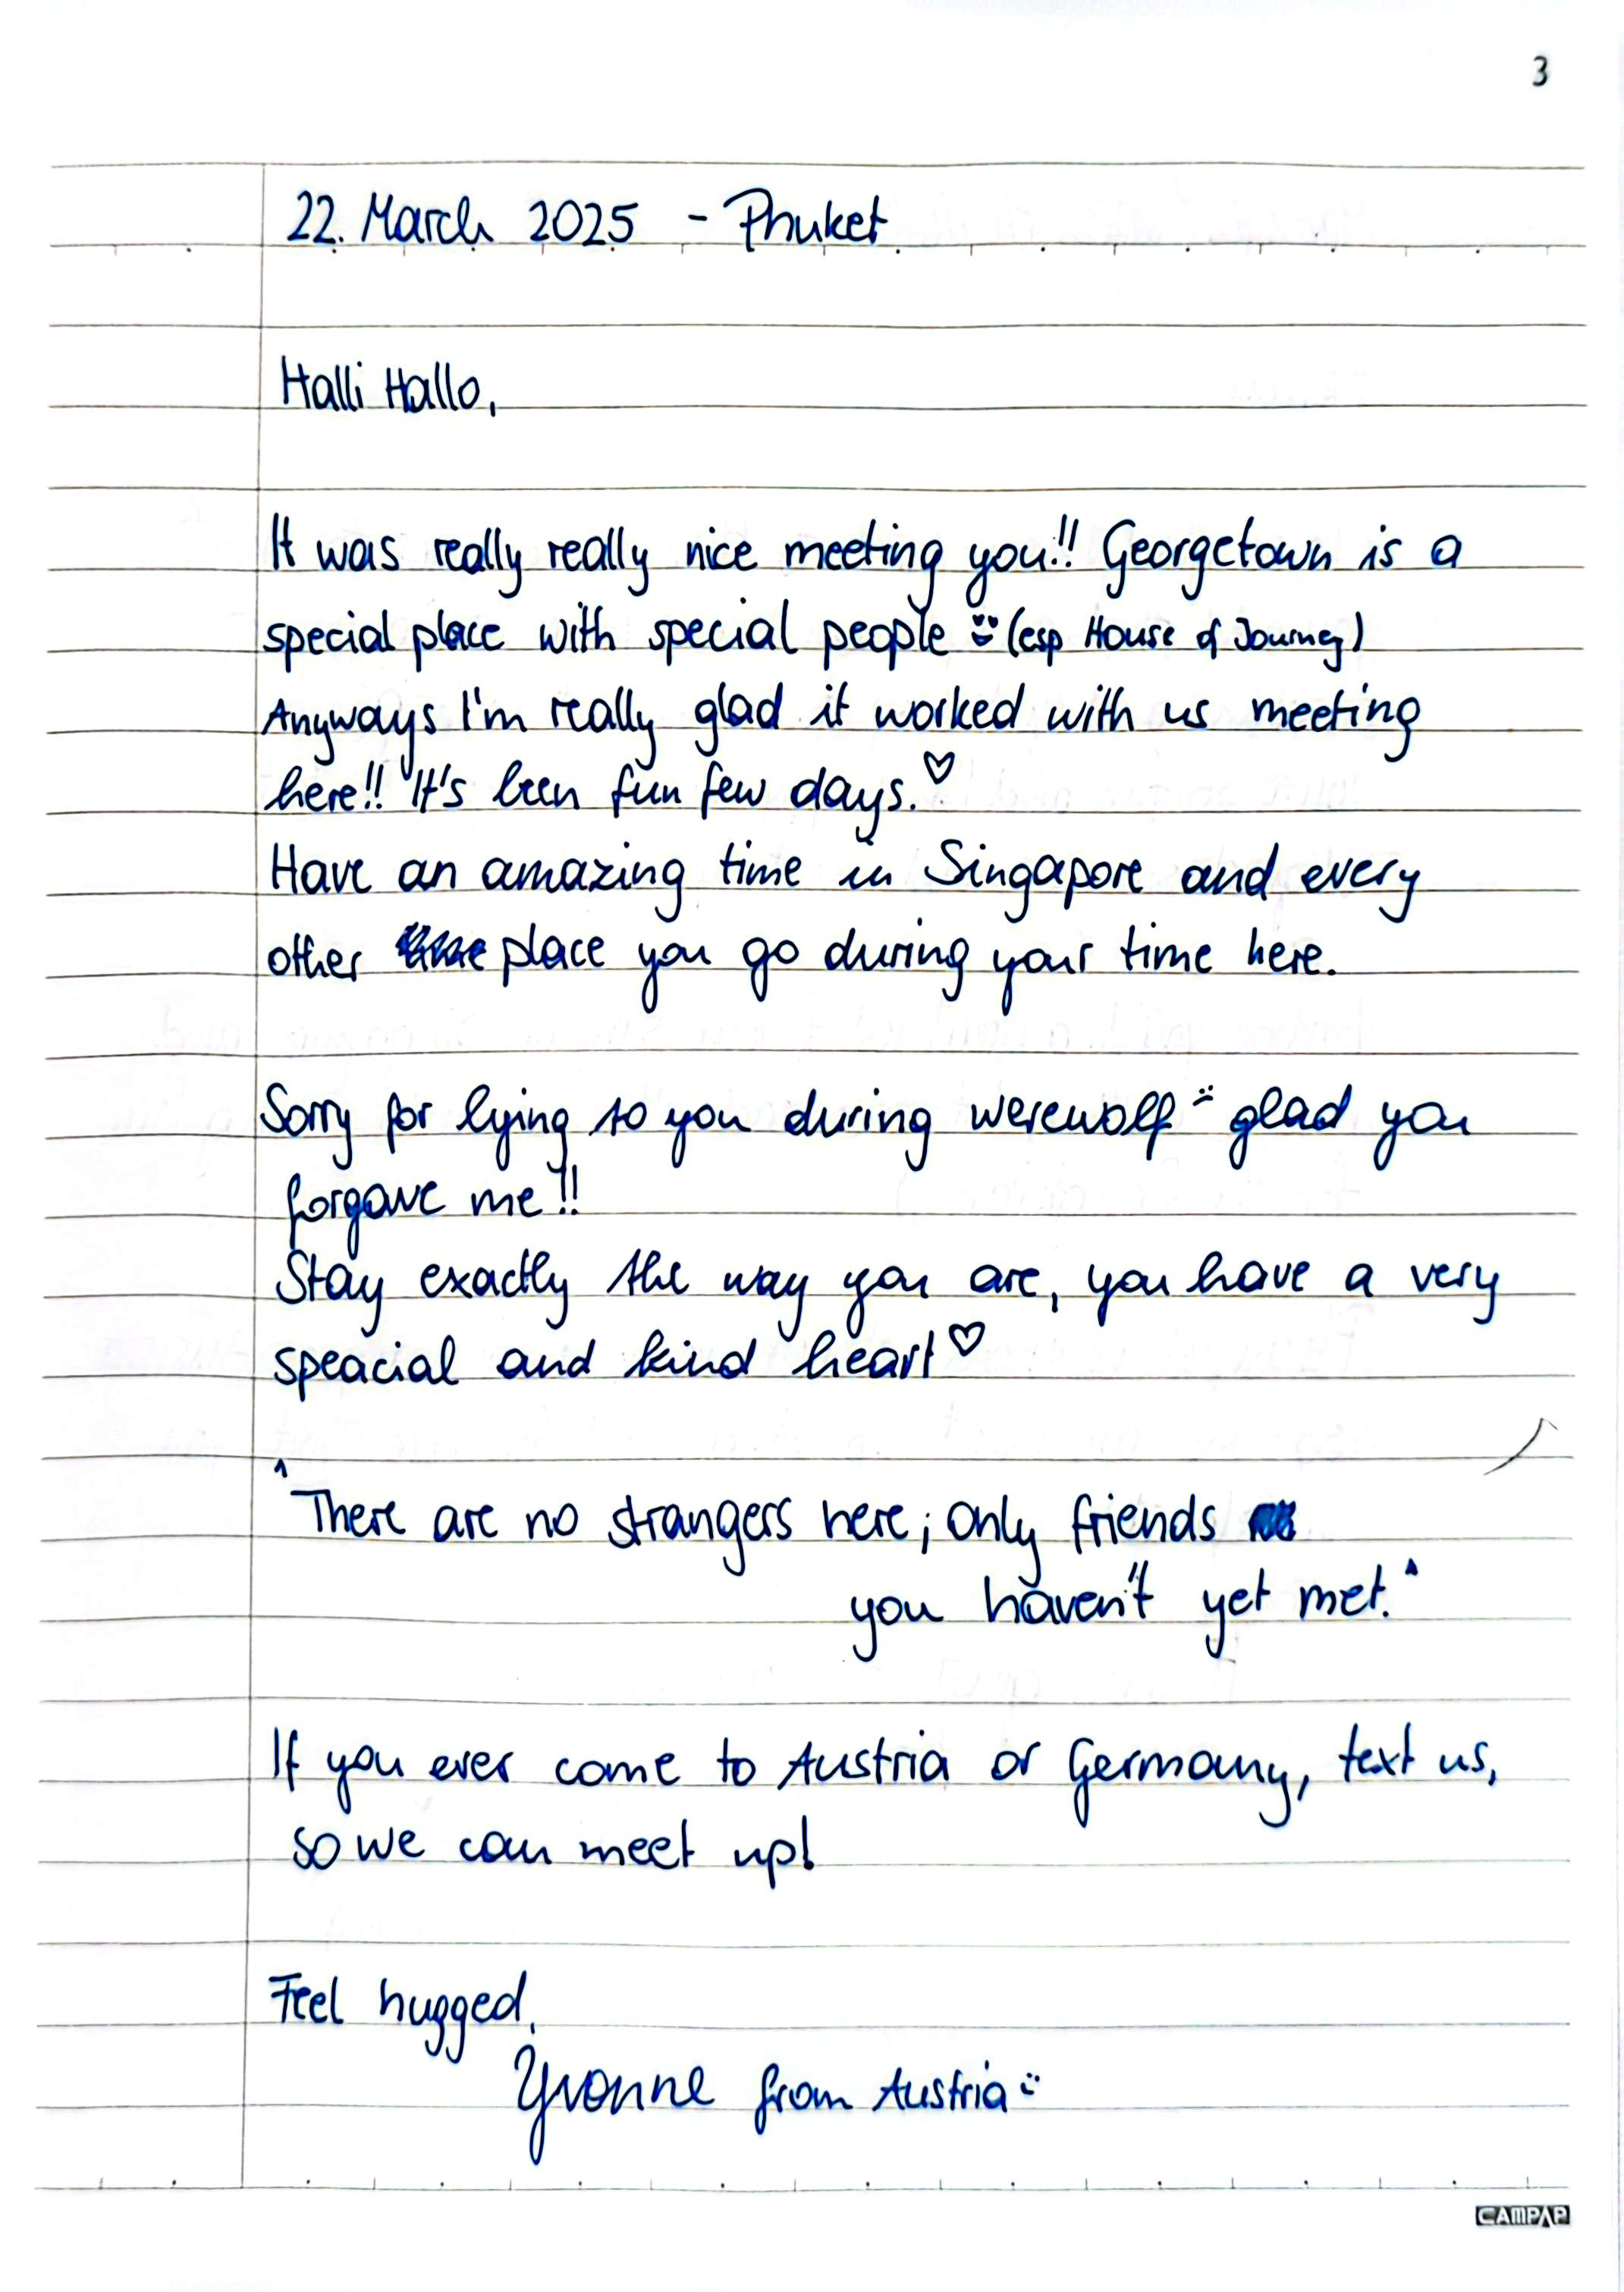 3
22. March 2025 - Phuket
Halli Hallo,
It was really really nice meeting you!! Georgetown is a
special place with special people :) (esp House of Journey)
Anyways I'm really glad it worked with us meeting
here!! It's been fun few days. ♡
Have an amazing time in Singapore and every
other place you go during your time here.
Sorry for lying to you during werewolf :) glad you
forgave me!!
Stay exactly the way you are, you have a very
speacial and kind heart ♡
"There are no strangers here; only friends
you haven't yet met."
If you ever come to Austria or Germany, text us,
so we can meet up!
Feel hugged,
Yvonne from Austria :)
CAMPAP